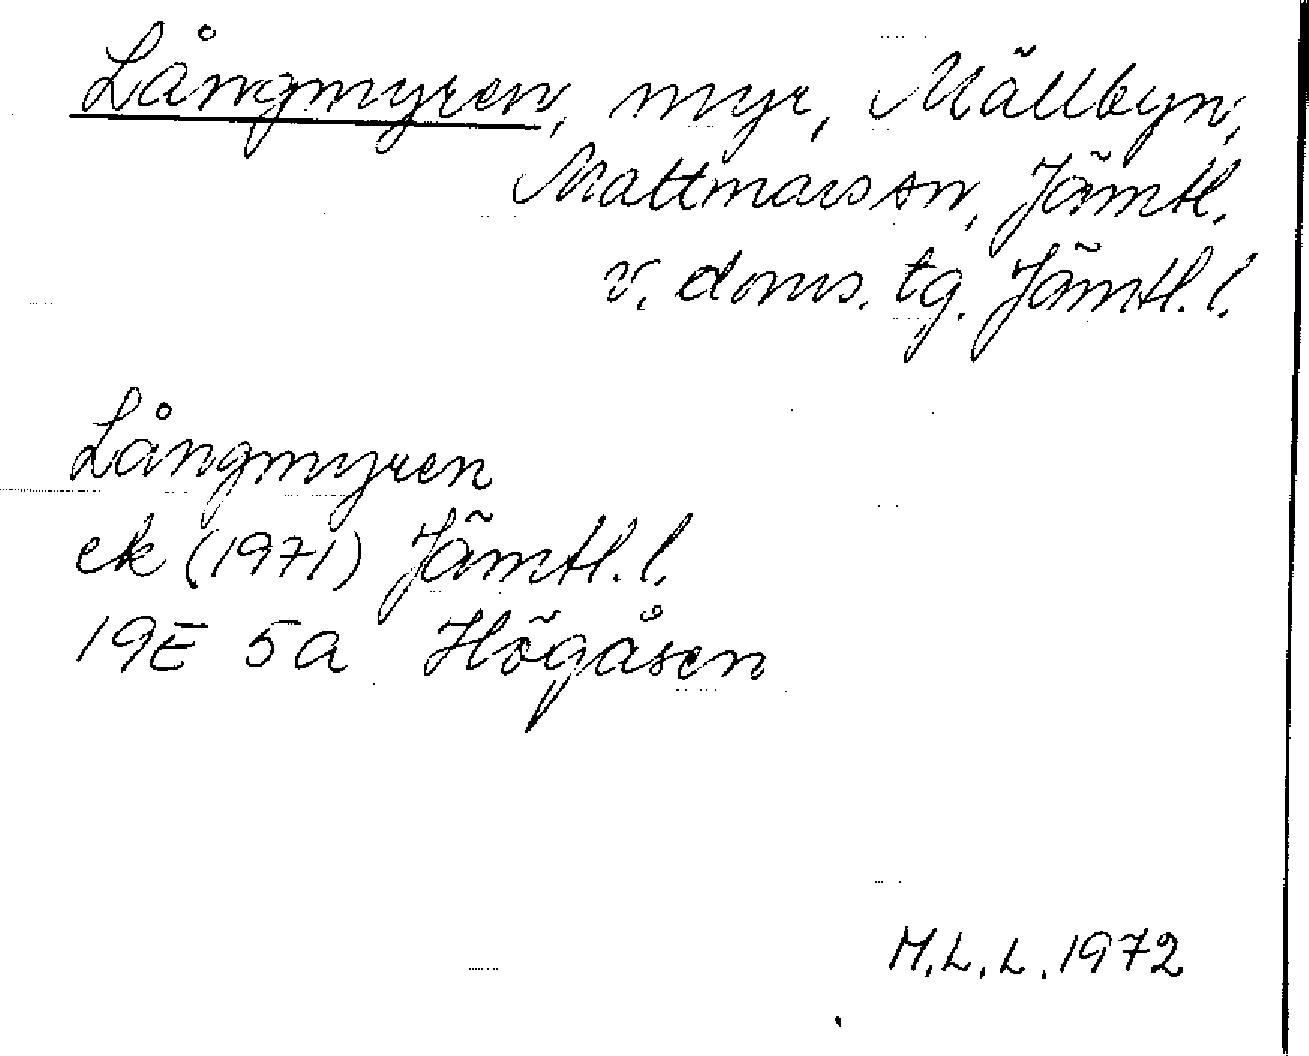 Långmyren, myr, Mällbyn,
Mattmars sn, Jämtl.
v. doms. tg. Jämtl. l.
Långmyren
ek (1971) Jämtl. l.
19E 5a Högåsen
M.L.L. 1972